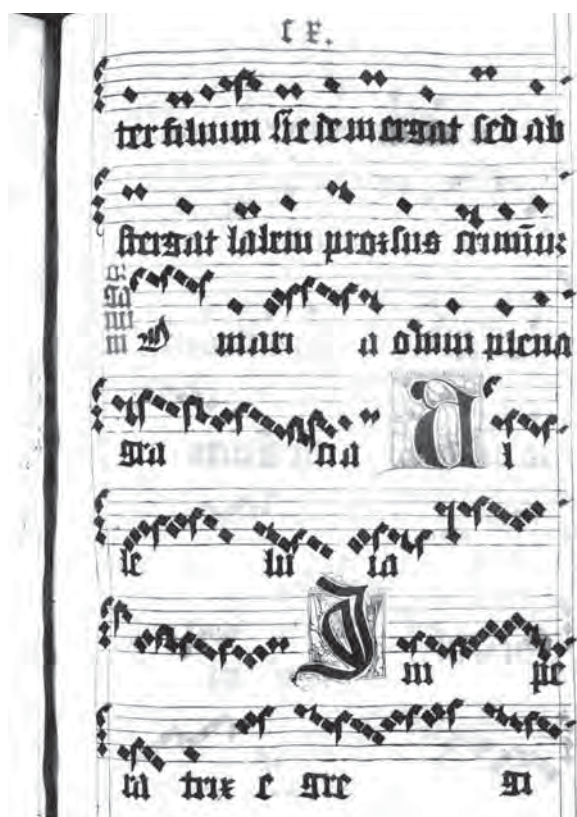 c x.
ter filium sic demergat sed ab
stergat labem prorsus
O mari a plena
gra tia A l
le lu ia
I m pe
ra trix e gre gi